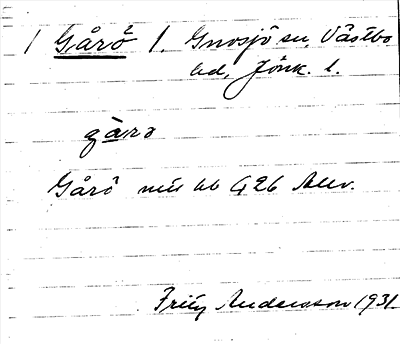 1 Gårö 1. Gnosjö sn, Västbo
hd, Jönk. l.
gårə
Gårö mtl bl G26 Alev.
Fritz Andersson 1931